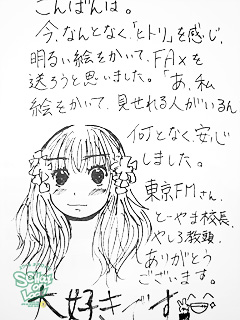 こんばんは。
今、なんとなく、「ヒトリ」を感じ、
明るい絵をかいて、FAXを
送ろうと思いました。「あ、私
絵をかいて、見せれる人がいるん
何となく、安心
しました。
東京FMさん、
とーやま校長、
やしろ教頭、
ありがとう
ございます。
大好きです